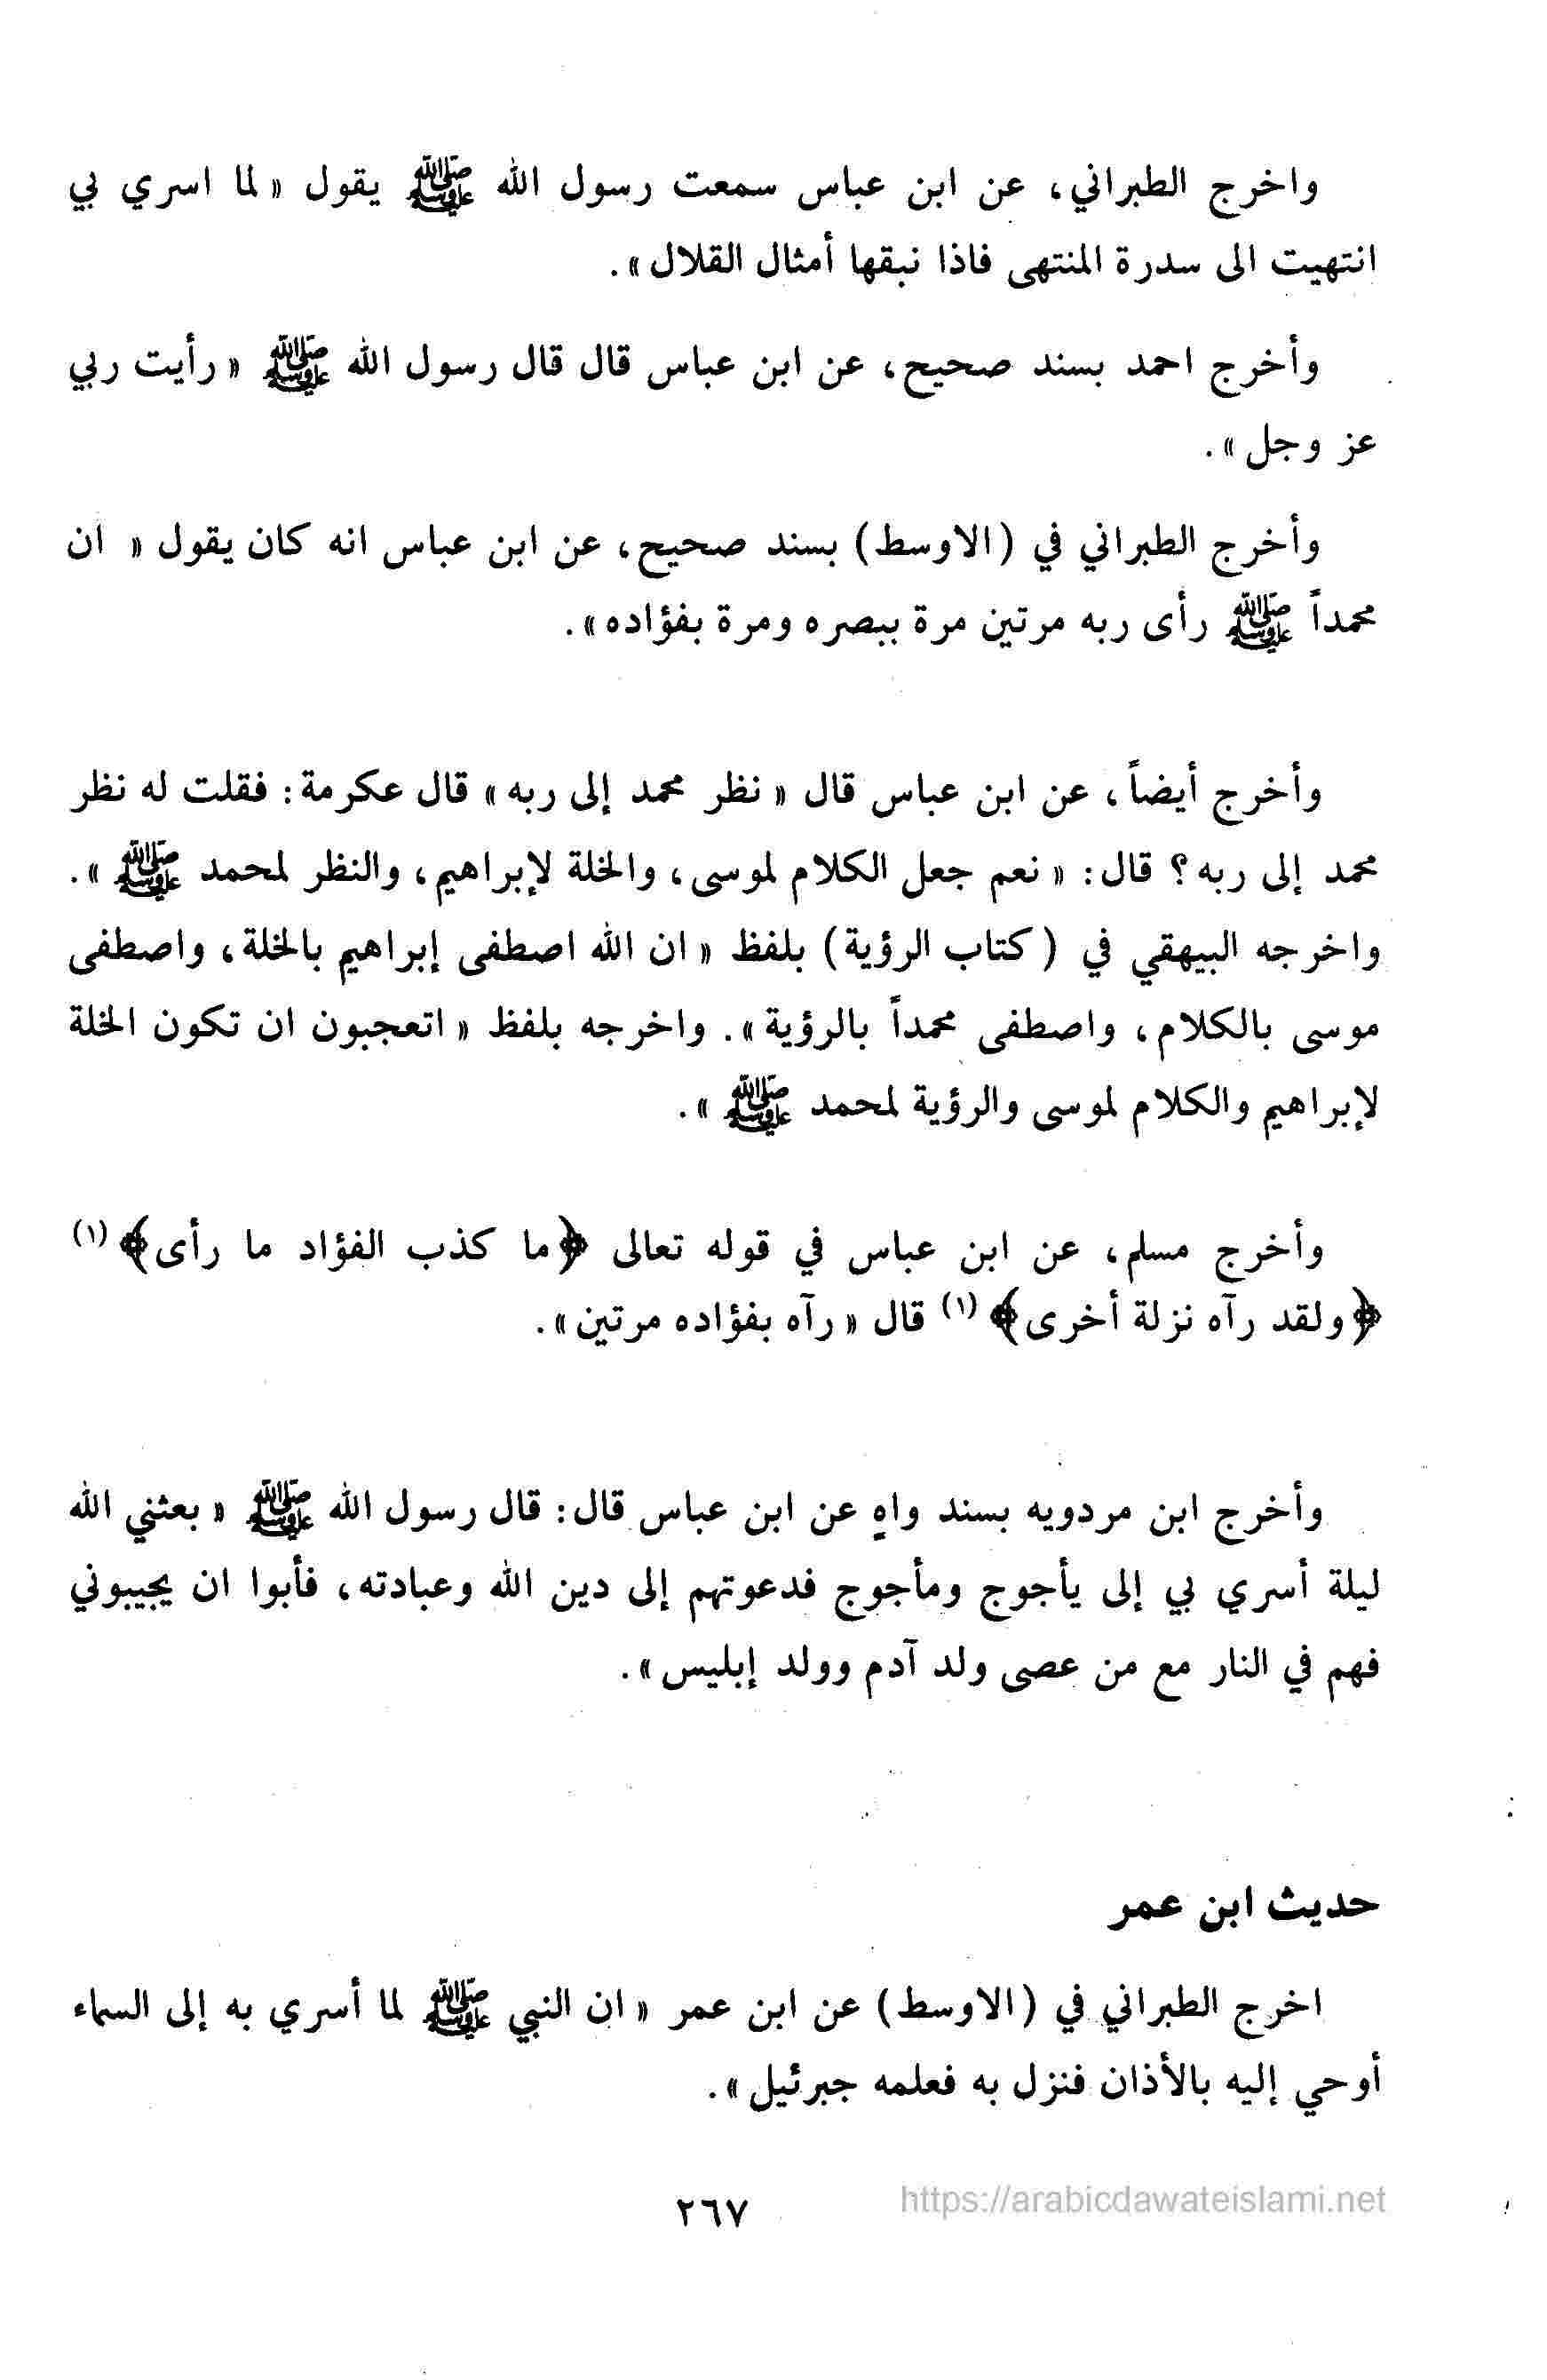 واخرج الطبراني، عن ابن عباس سمعت رسول الله ﷺ يقول « لما اسري بي
انتهيت الى سدرة المنتهى فاذا نبقها أمثال القلال ».
وأخرج احمد بسند صحيح، عن ابن عباس قال قال رسول الله ﷺ « رأيت ربي
عز وجل ».
وأخرج الطبراني في (الاوسط) بسند صحيح، عن ابن عباس انه كان يقول « ان
محمداً ﷺ رأى ربه مرتين مرة ببصره ومرة بفؤاده».
وأخرج أيضاً، عن ابن عباس قال « نظر محمد إلى ربه » قال عكرمة: فقلت له نظر
محمد إلى ربه؟ قال: « نعم جعل الكلام لموسى، والخلة لإبراهيم، والنظر لمحمد ﷺ ».
واخرجه البيهقي في (كتاب الرؤية) بلفظ « ان الله اصطفى إبراهيم بالخلة، واصطفى
موسى بالكلام، واصطفى محمداً بالرؤية». واخرجه بلفظ « اتعجبون ان تكون الخلة
لإبراهيم والكلام لموسى والرؤية لمحمد ﷺ ».
وأخرج مسلم، عن ابن عباس في قوله تعالى ﴿ما كذب الفؤاد ما رأى﴾ (١)
﴿ولقد رآه نزلة أخرى﴾ (١) قال « رآه بفؤاده مرتين».
وأخرج ابن مردويه بسند واهٍ عن ابن عباس قال: قال رسول الله ﷺ « بعثني الله
ليلة أسري بي إلى يأجوج ومأجوج فدعوتهم إلى دين الله وعبادته، فأبوا ان يجيبوني
فهم في النار مع من عصى ولد آدم وولد إبليس ».
حديث ابن عمر
اخرج الطبراني في (الاوسط) عن ابن عمر « ان النبي ﷺ لما أسري به إلى السماء
أوحي إليه بالأذان فنزل به فعلمه جبرئيل ».
٢٦٧
https://arabicdawateislami.net